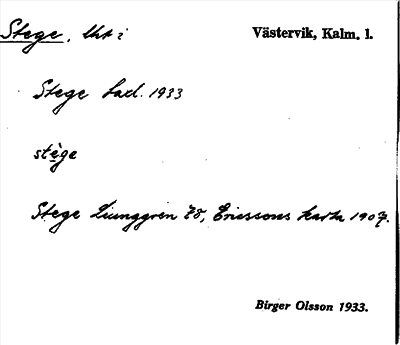 Stege, Utt i Västervik, Kalm. l.
Stege Laxl. 1933
stège
Stege Ljunggren 78, Ericssons karta 1907.
Birger Olsson 1933.